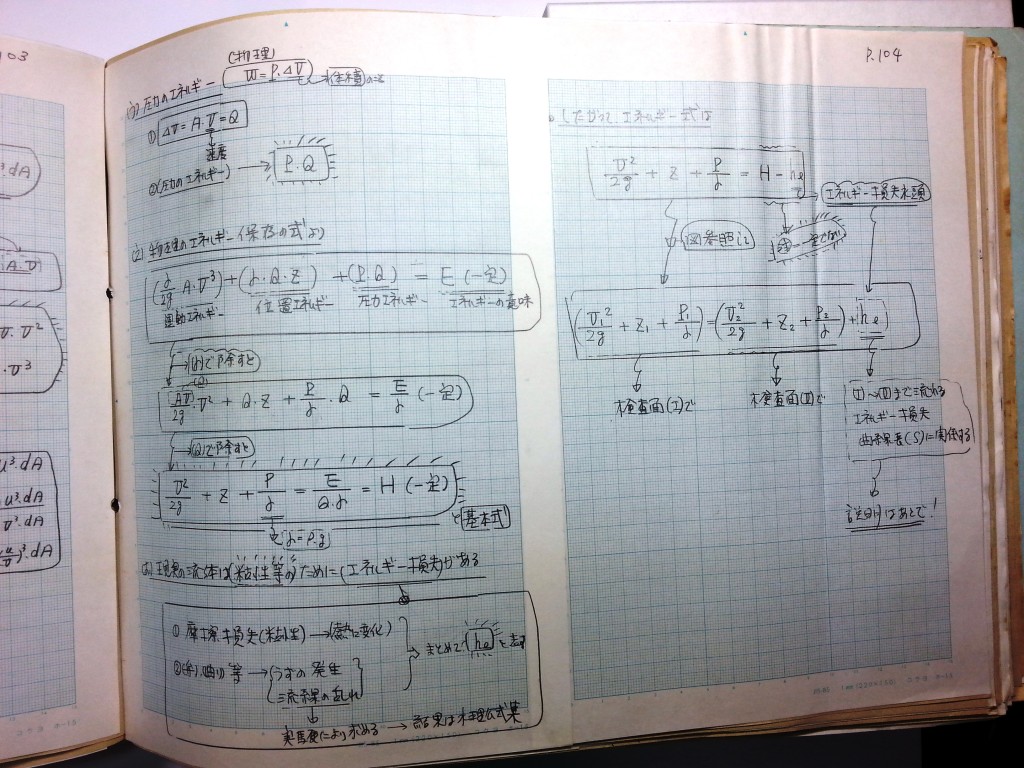 03
³.dA
A.V
V.V²
.V³
u³.dA
u³.dA
V³.dA
(u/V)³.dA
(物理)
圧力のエネルギー W=P.ΔV
① ΔV=A.V=Q
速度
②(圧力のエネルギー) → P.Q
物理のエネルギー保存の式より
(γ/2g A.V³)+(γ.Q.Z)+(P.Q) = E (一定)
運動エネルギー 位置エネルギー 圧力エネルギー エネルギーの意味
(γ)で除すと
(Q)
AV/2g.V² + Q.Z + P/γ.Q = E/γ (一定)
(Q)で除すと
V²/2g + Z + P/γ = E/Q.γ = H (一定)
基本式
γ=ρ.g
現実の流体は(粘性等の)ために(エネルギー損失)がある
① 摩擦損失(粘性) → (熱に変化)
まとめて (he) を
② 曲り等 → うずの発生
流線の乱れ
実験により求める → 結果は水理公式集
P.104
したがって、エネルギー式は
V²/2g + Z + P/γ = H - he
エネルギー損失水頭
図参照して
(V₁²/2g + Z₁ + P₁/γ)=(V₂²/2g + Z₂ + P₂/γ)+(he)
検査面(I)で
検査面(II)で
(I)〜(II)まで流れる
エネルギー損失
(S)に関係する
説明はあとで!